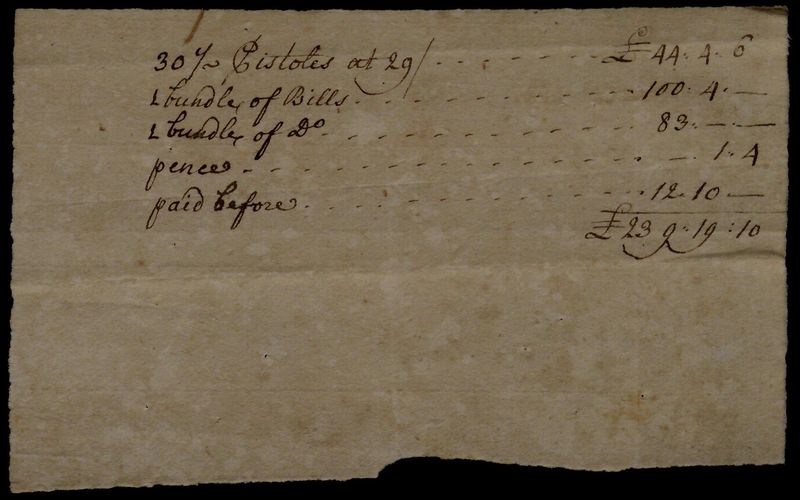 30½ Pistoles at 29/ - - - - - - £ 44. 4. 6
1 bundle of Bills - - - - - - 100. 4. —
1 bundle of Do - - - - - - 83. — —
pence - - - - - - — 1. 4
paid before - - - - - - 12. 10 —
£ 239. 19: 10